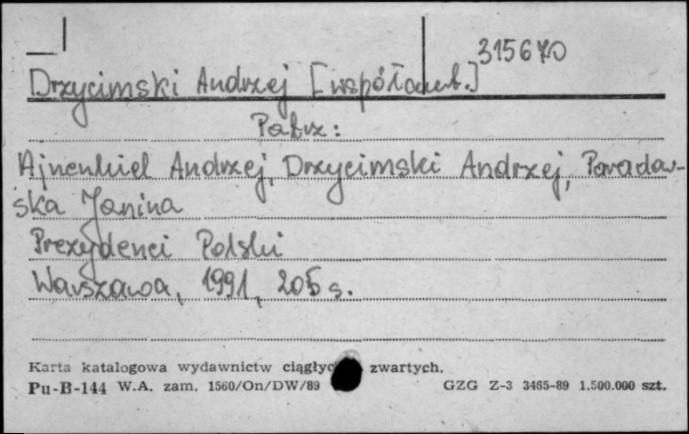 315670
Drzycimski Andrzej [współaut.]
Patrz:
Ajnenkiel Andrzej, Drzycimski Andrzej, Paradow-
ska Janina
Prezydenci Polski
Warszawa, 1991, 205 s.
Karta katalogowa wydawnictw ciągłyc zwartych.
Pu-B-144 W.A. zam. 1560/On/DW/89 GZG Z-3 3465-89 1.500.000 szt.